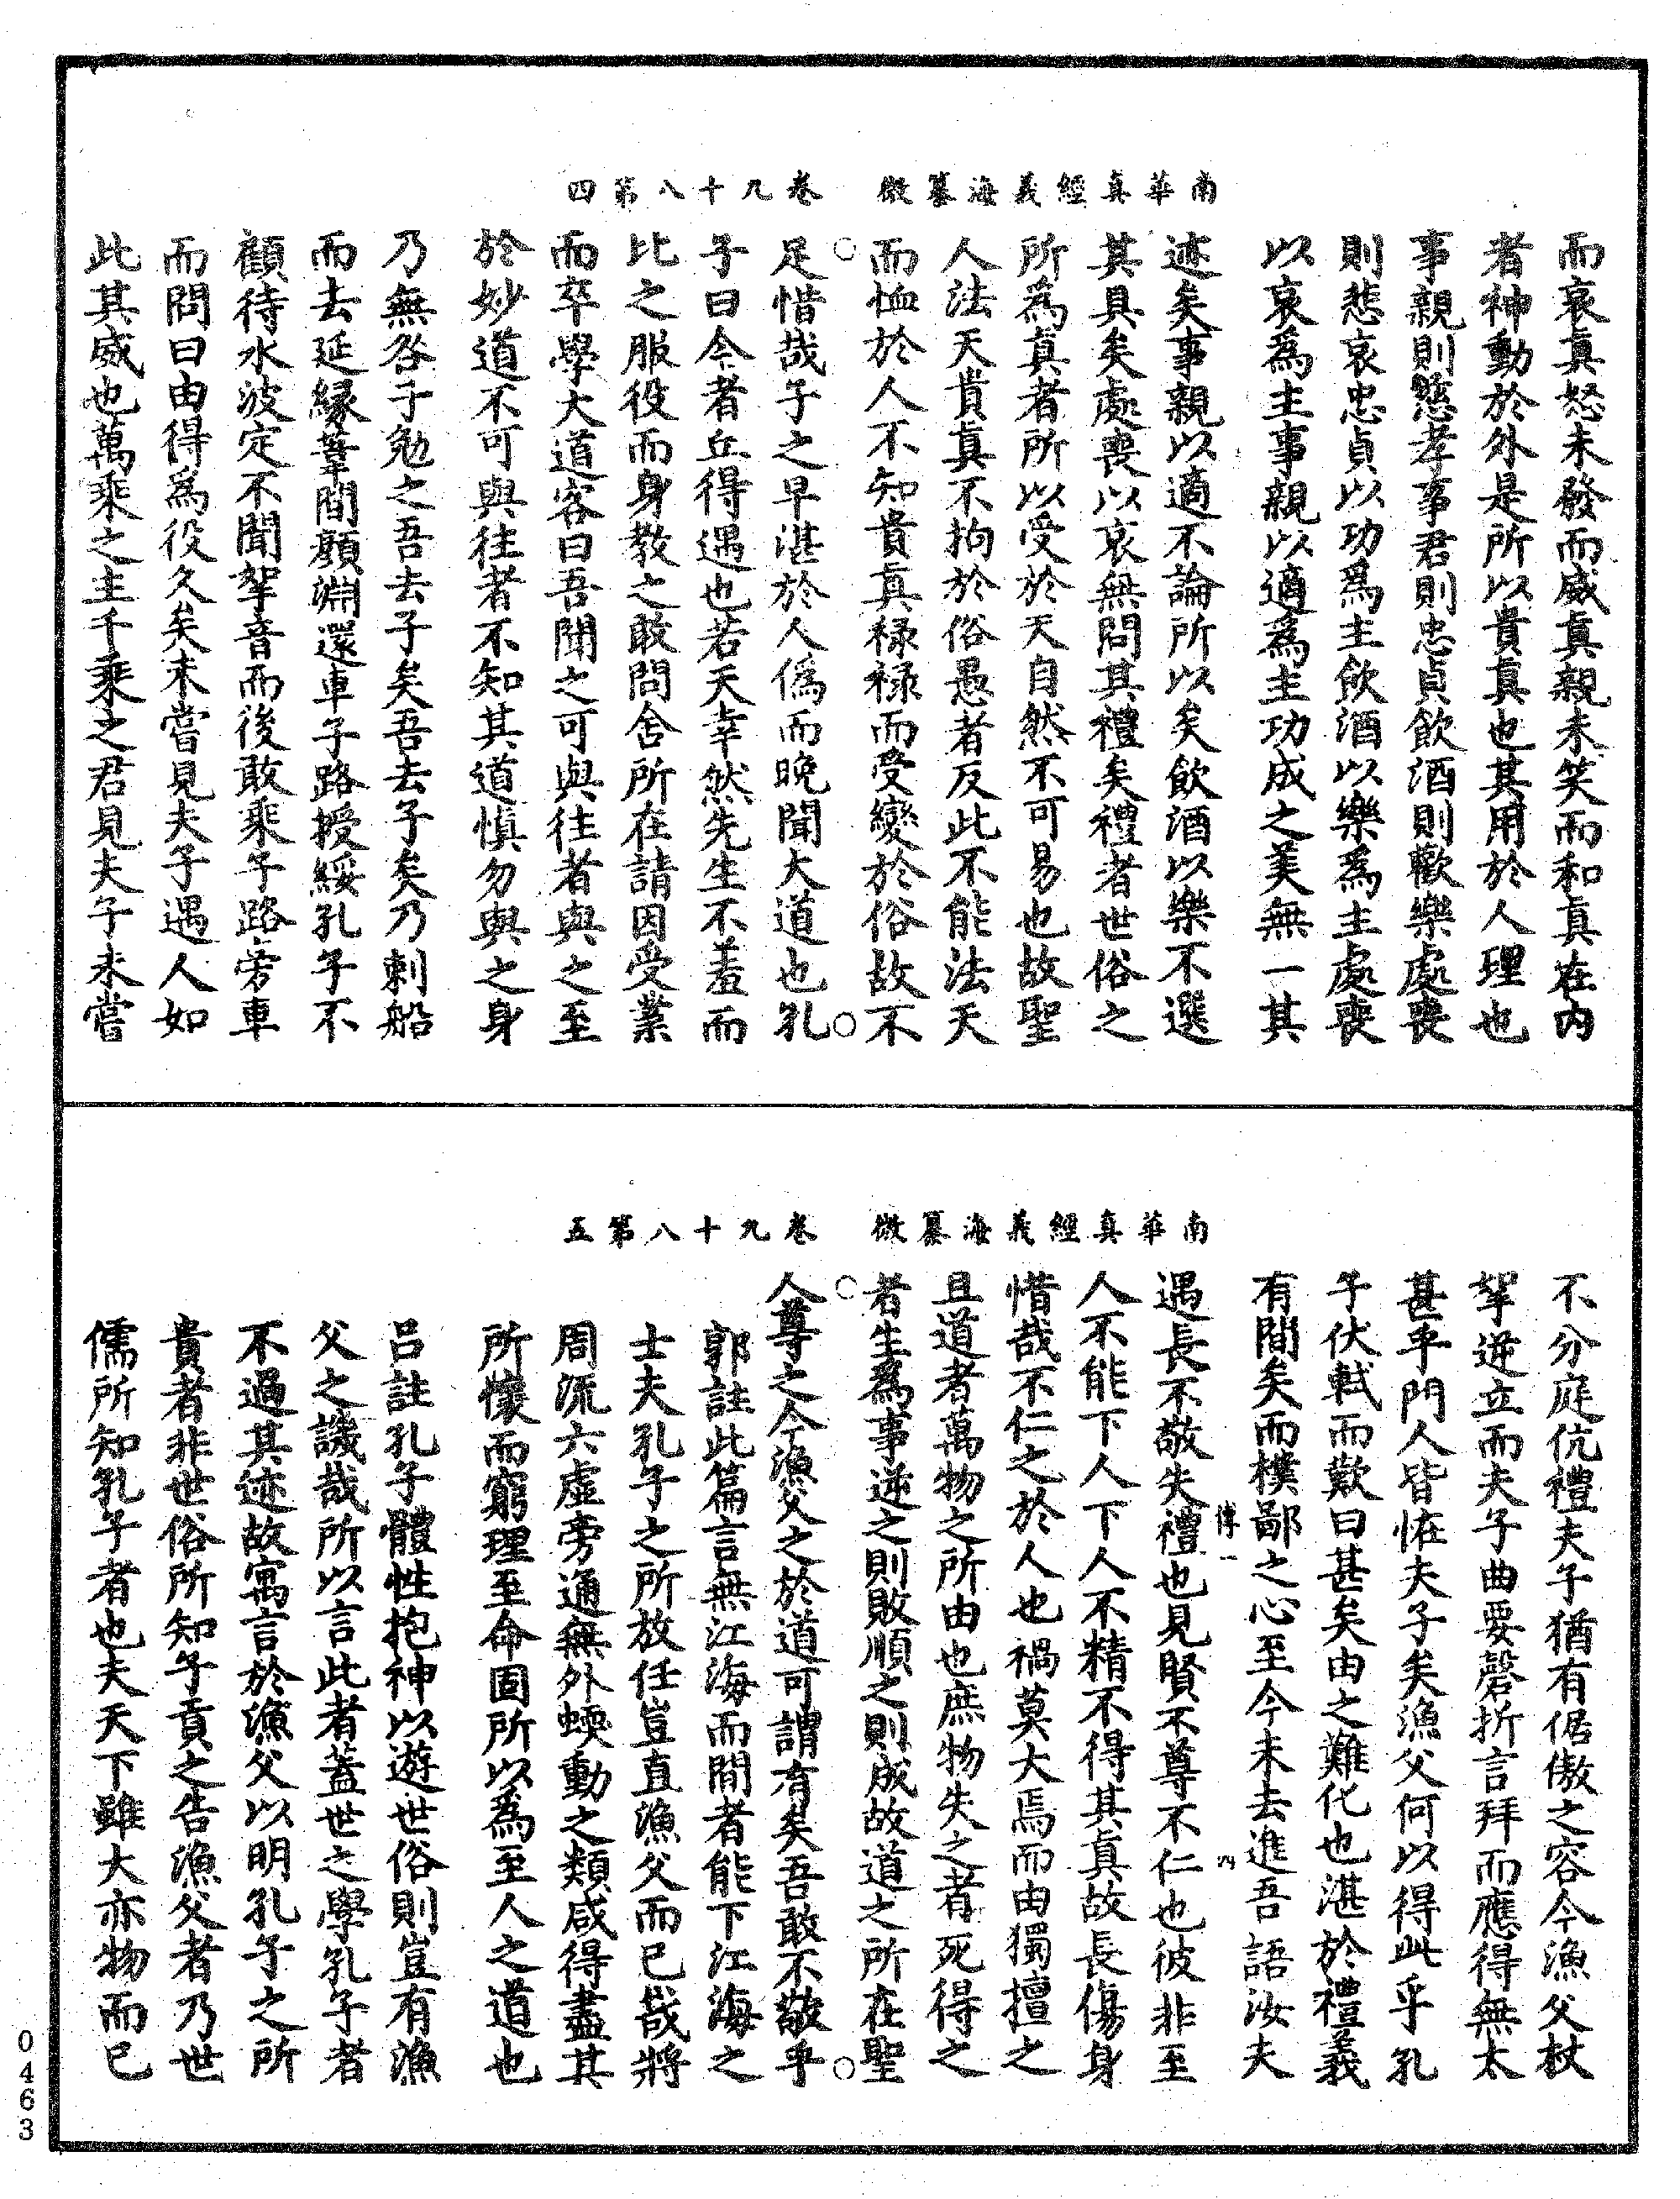 南華真經義海纂微　卷九十八第四
而哀真怒未發而威真親未笑而和真在内
者神動於外是所以貴真也其用於人理也
事親則慈孝事君則忠貞飲酒則歡樂處喪
則悲哀忠貞以功爲主飲酒以樂爲主處喪
以哀爲主事親以適爲主功成之美無一其
迹矣事親以適不論所以矣飲酒以樂不選
其具矣處喪以哀無問其禮矣禮者世俗之
所爲真者所以受於天自然不可易也故聖
人法天貴真不拘於俗愚者反此不能法天
而恤於人不知貴真祿祿而受變於俗故不
足惜哉子之早湛於人僞而晚聞大道也孔
子曰今者丘得遇也若天幸然先生不羞而
比之服役而身教之敢問舍所在請因受業
而卒學大道客曰吾聞之可與往者與之至
於妙道不可與往者不知其道慎勿與之身
乃無咎子勉之吾去子矣吾去子矣乃刺船
而去延緣葦間顏淵還車子路授綏孔子不
顧待水波定不聞挐音而後敢乘子路旁車
而問曰由得爲役久矣未嘗見夫子遇人如
此其威也萬乘之主千乘之君見夫子未嘗
南華真經義海纂微　卷九十八第五
不分庭伉禮夫子猶有倨傲之容今漁父杖
挐逆立而夫子曲要磬折言拜而應得無太
甚乎門人皆怪夫子矣漁父何以得此乎孔
子伏軾而歎曰甚矣由之難化也湛於禮義
有間矣而樸鄙之心至今未去進吾語汝夫
遇長不敬失禮也見賢不尊不仁也彼非至
人不能下人下人不精不得其真故長傷身
惜哉不仁之於人也禍莫大焉而由獨擅之
且道者萬物之所由也庶物失之者死得之
者生爲事逆之則敗順之則成故道之所在聖
人尊之今漁父之於道可謂有矣吾敢不敬乎
郭註此篇言無江海而間者能下江海之
士夫孔子之所放任豈直漁父而已哉將
周流六虛旁通無外蝡動之類咸得盡其
所懷而窮理至命固所以爲至人之道也
呂註孔子體性抱神以遊世俗則豈有漁
父之譏哉所以言此者蓋世之學孔子者
不過其迹故寓言於漁父以明孔子之所
貴者非世俗所知子貢之告漁父者乃世
儒所知孔子者也夫天下雖大亦物而已
0463